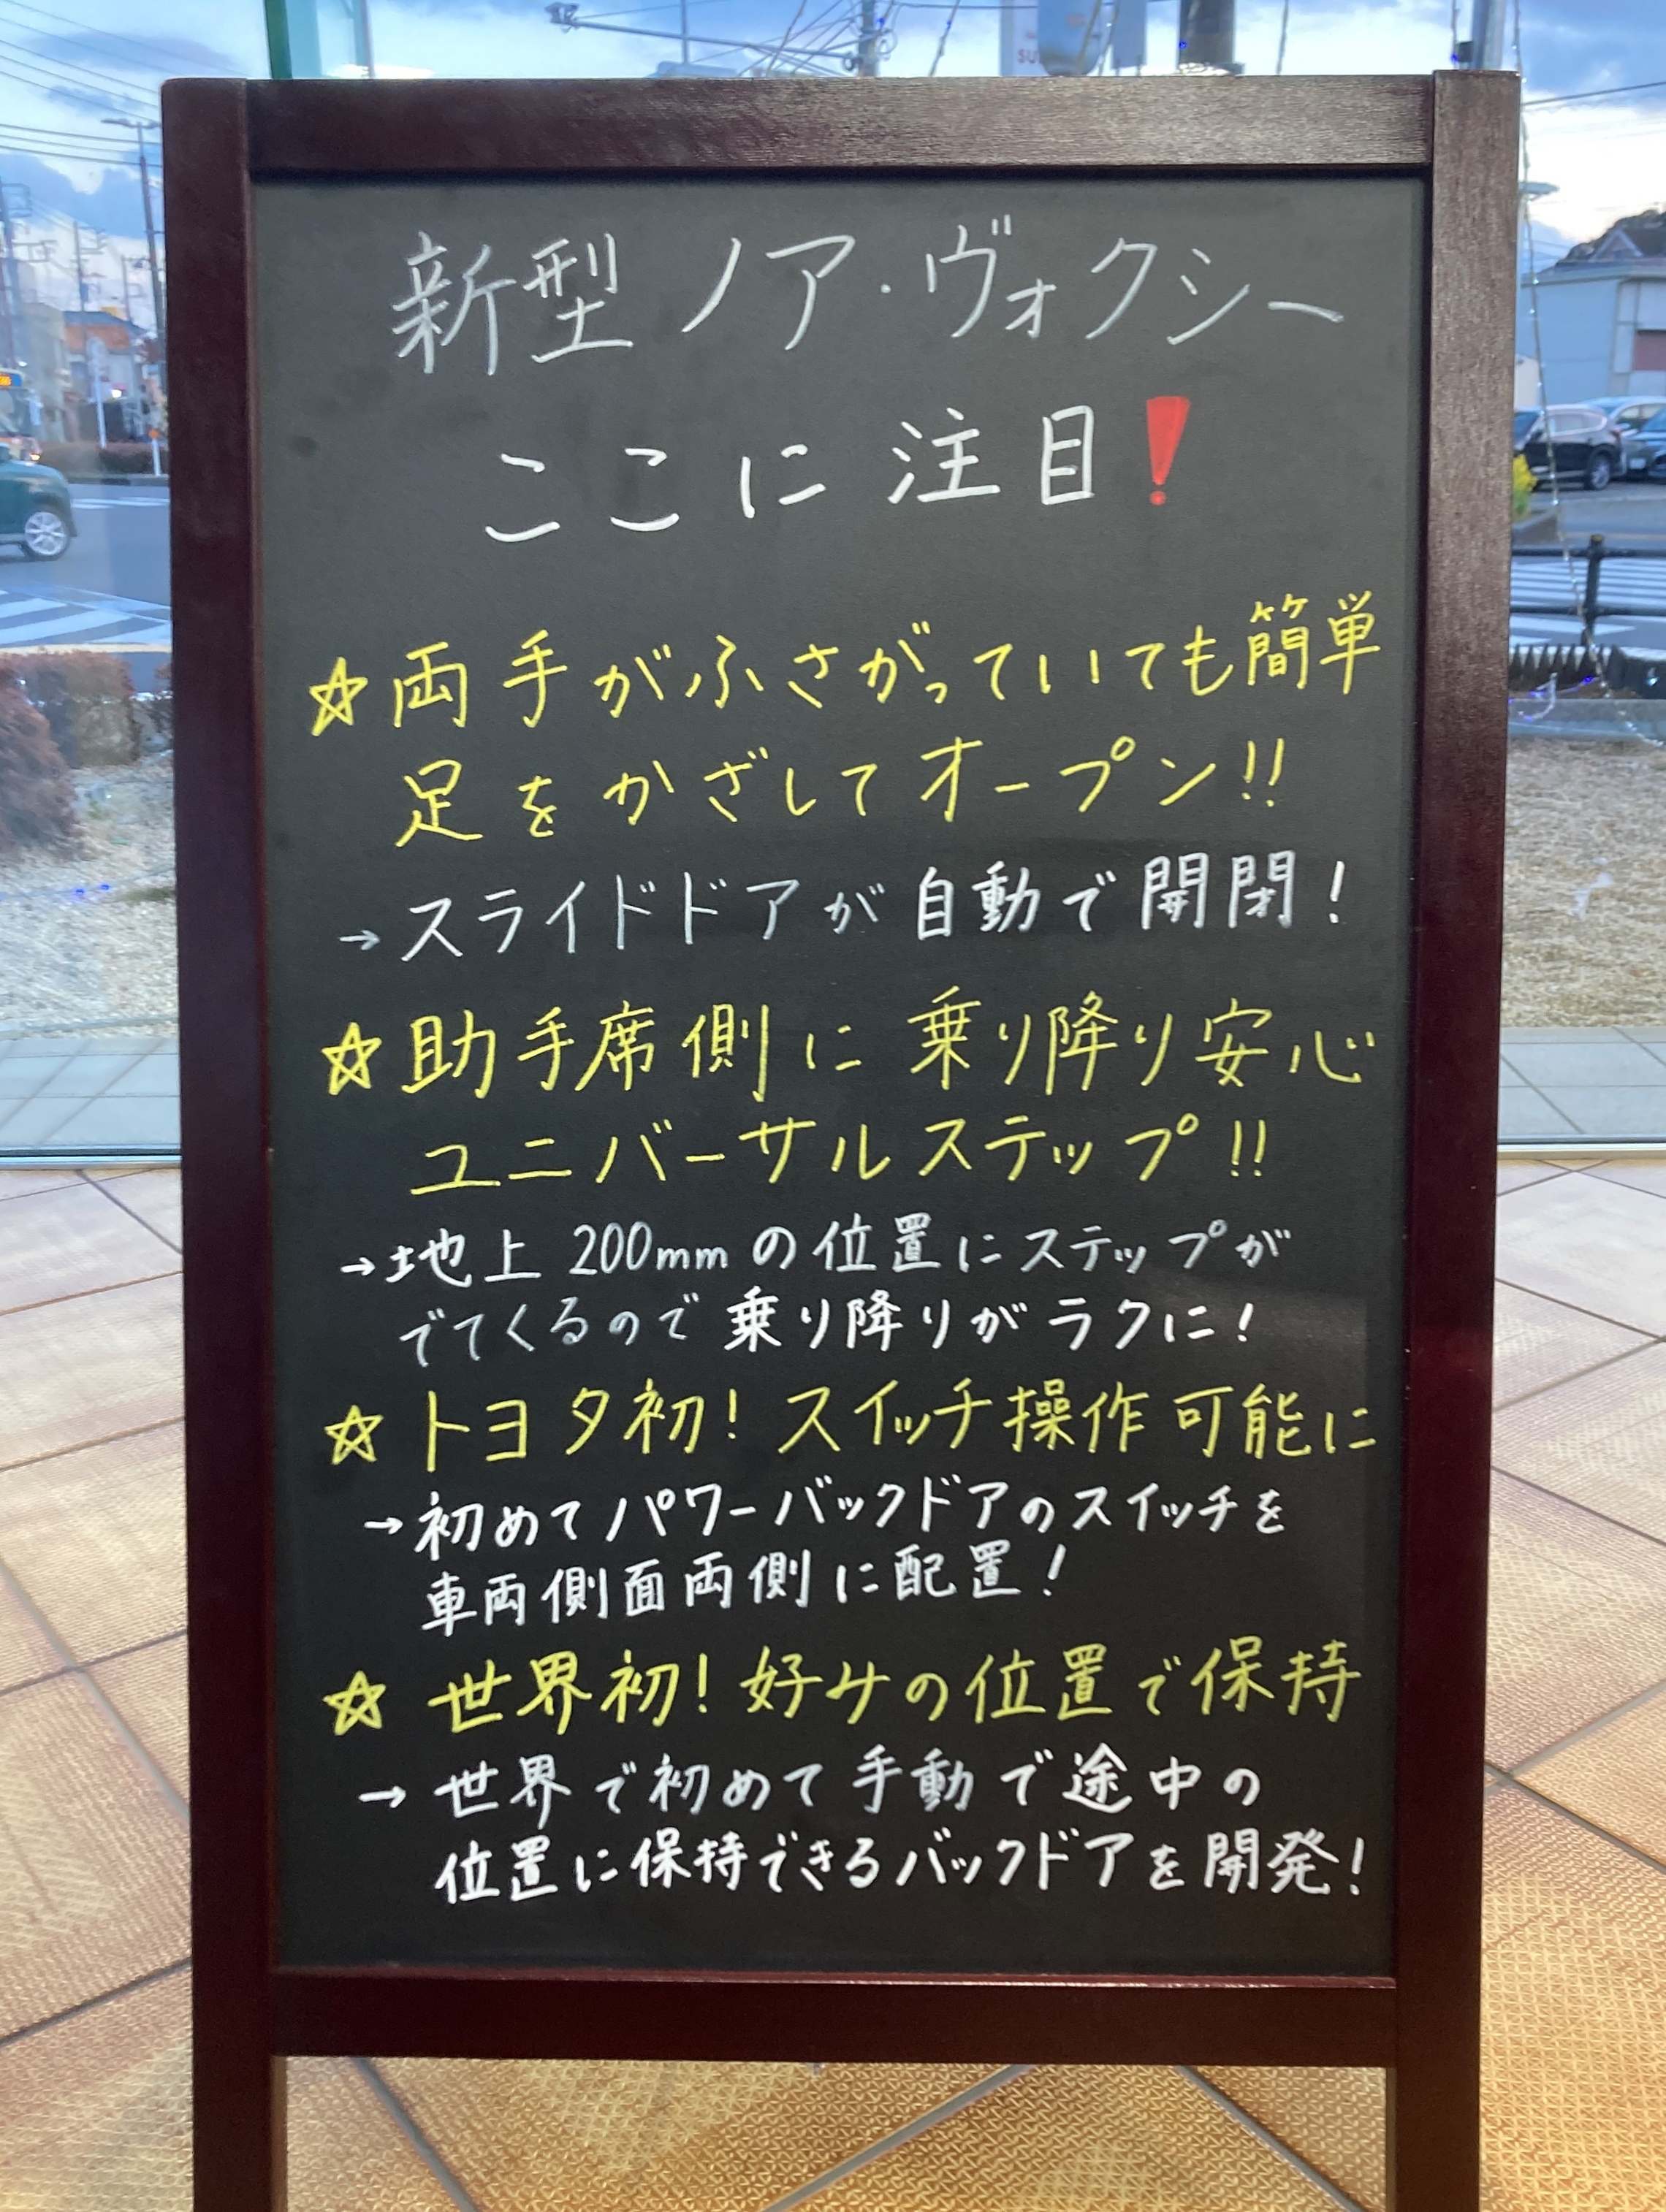 新型ノア・ヴォクシー
ここに注目!
☆両手がふさがっていても簡単
足をかざしてオープン!!
→スライドドアが自動で開閉!
☆助手席側に乗り降り安心
ユニバーサルステップ!!
→地上200mmの位置にステップが
でてくるので乗り降りがラクに!
☆トヨタ初!スイッチ操作可能に
→初めてパワーバックドアのスイッチを
車両側面両側に配置!
☆世界初!好みの位置で保持
→世界で初めて手動で途中の
位置に保持できるバックドアを開発!